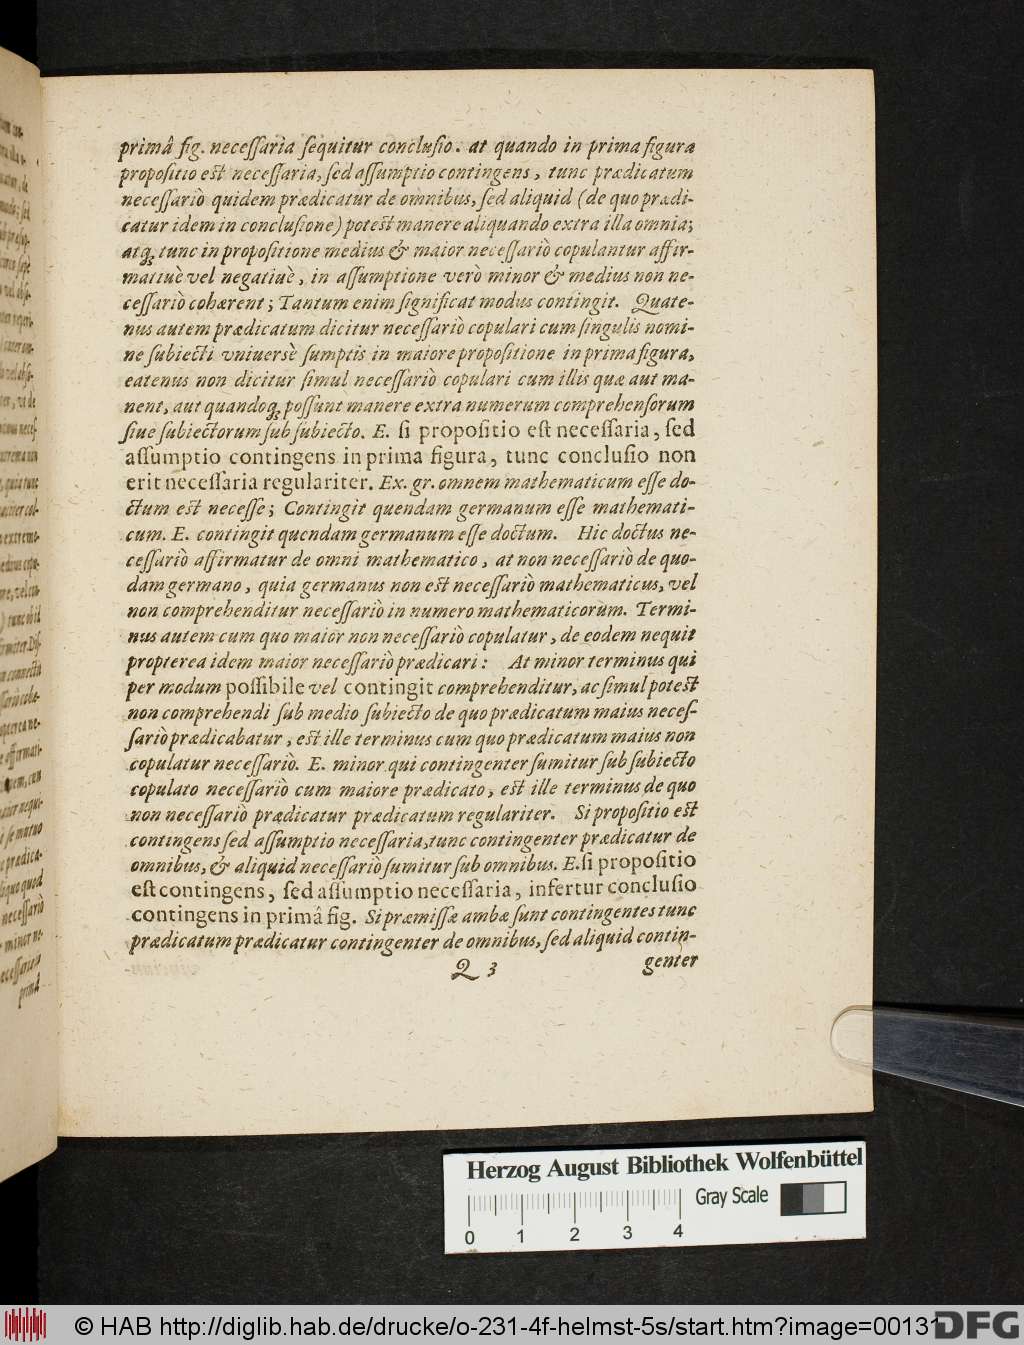 primâ fig. necessaria sequitur conclusio. at quando in prima figura
propositio est necessaria, sed assumptio contingens, tunc prædicatum
necessariò quidem prædicatur de omnibus, sed aliquid (de quo prædi-
catur idem in conclusione) potest manere aliquando extra illa omnia;
atq; tunc in propositione medius & maior necessariò copulantur affir-
matiuè vel negatiuè, in assumptione verò minor & medius non ne-
cessariò cohærent; Tantum enim significat modus contingit. Quate-
nus autem prædicatum dicitur necessariò copulari cum singulis nomi-
ne subiecti vniuersè sumptis in maiore propositione in prima figura,
eatenus non dicitur simul necessariò copulari cum illis quæ aut ma-
nent, aut quandoq; possunt manere extra numerum comprehensorum
siue subiectorum sub subiecto. E. si propositio est necessaria, sed
assumptio contingens in prima figura, tunc conclusio non
erit necessaria regulariter. Ex. gr. omnem mathematicum esse do-
ctum est necesse; Contingit quendam germanum esse mathemati-
cum. E. contingit quendam germanum esse doctum. Hic doctus ne-
cessariò affirmatur de omni mathematico, at non necessariò de quo-
dam germano, quia germanus non est necessariò mathematicus, vel
non comprehenditur necessariò in numero mathematicorum. Termi-
nus autem cum quo maior non necessariò copulatur, de eodem nequit
propterea idem maior necessariò prædicari: At minor terminus qui
per modum possibile vel contingit comprehenditur, ac simul potest
non comprehendi sub medio subiecto de quo prædicatum maius neces-
sariò prædicabatur, est ille terminus cum quo prædicatum maius non
copulatur necessariò. E. minor qui contingenter sumitur sub subiecto
copulato necessariò cum maiore prædicato, est ille terminus de quo
non necessariò prædicatur prædicatum regulariter. Si propositio est
contingens sed assumptio necessaria, tunc contingenter prædicatur de
omnibus, & aliquid necessariò sumitur sub omnibus. E. si propositio
est contingens, sed assumptio necessaria, infertur conclusio
contingens in primâ fig. Si præmissæ ambæ sunt contingentes tunc
prædicatum prædicatur contingenter de omnibus, sed aliquid contin-
Q 3 genter
Herzog August Bibliothek Wolfenbüttel
Gray Scale
0 1 2 3 4
© HAB http://diglib.hab.de/drucke/o-231-4f-helmst-5s/start.htm?image=00131
DFG